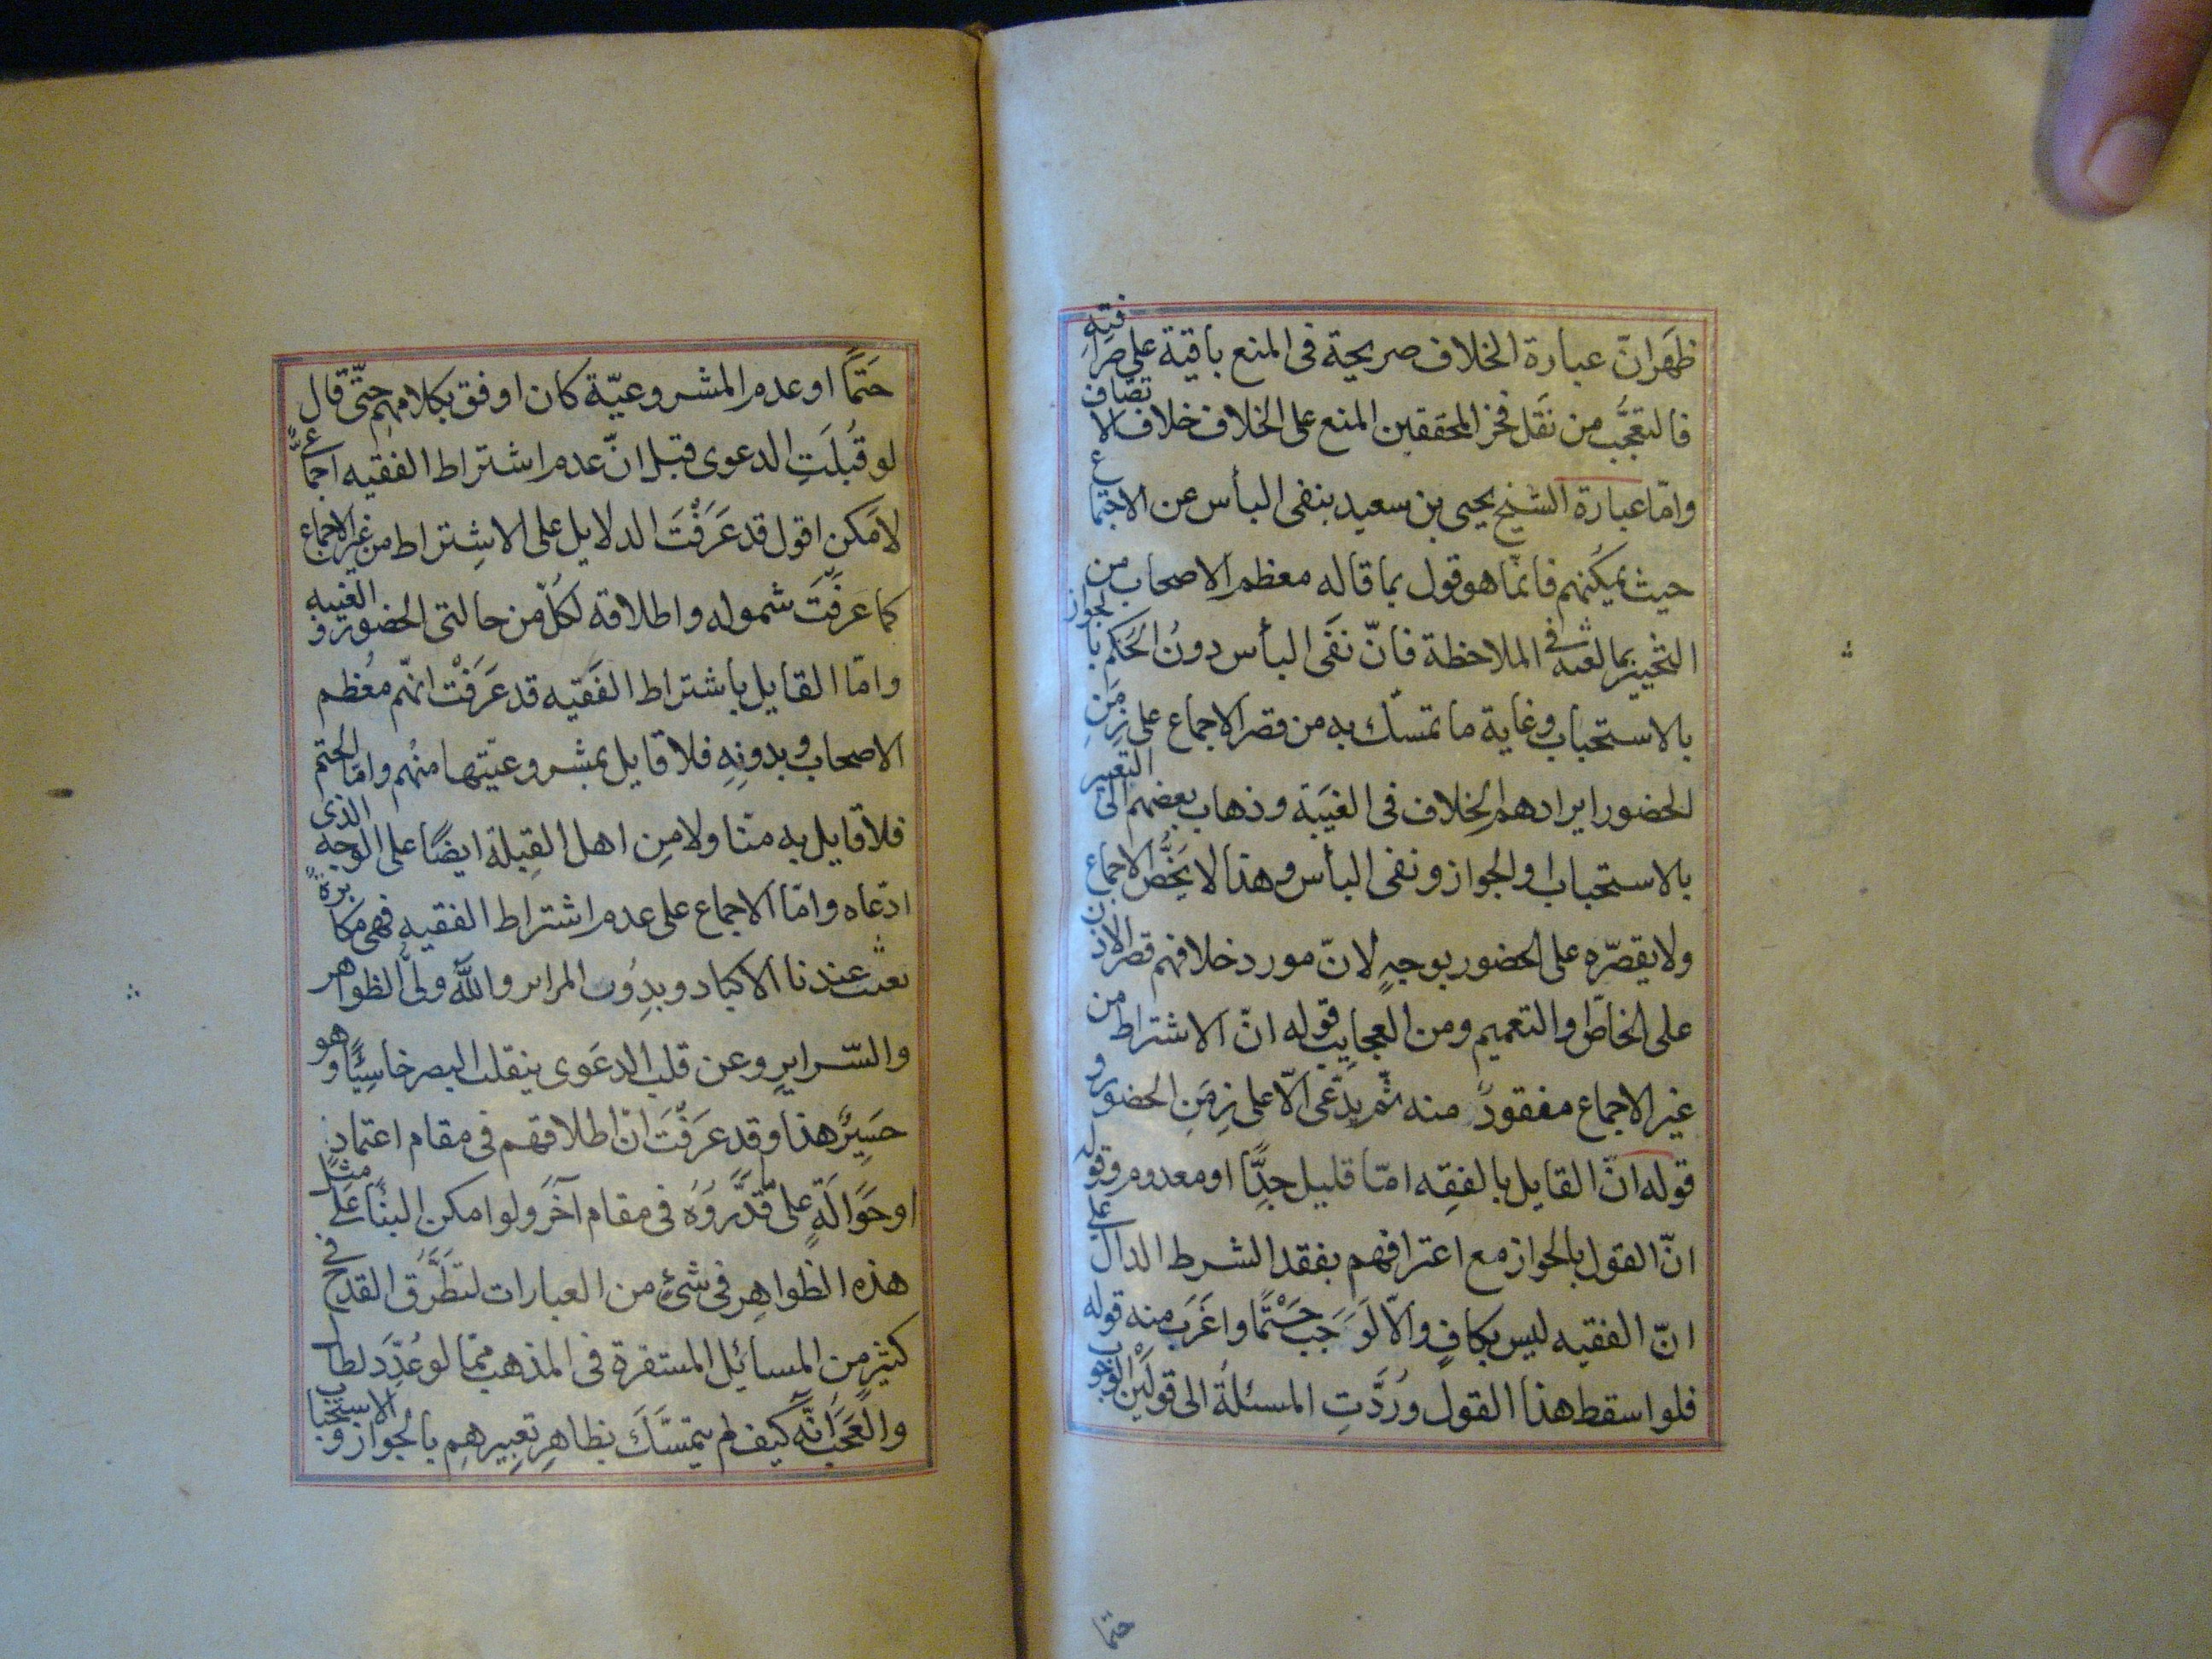 ظَهَرَ انّ عبارة الخلاف صريحة فى المنع باقية على صرافتِهِ
فالتعجُّب من نَقَل فخر المحققين المنع على الخلاف خلاف الانصاف
وامّا عبارة الشيخ يحيى بن سعيد بنفى البأس عن الاجتماع
حيث يمكنهم فانّما هو قول بما قاله معظم الاصحاب من
التخيير بما لغته فى الملاحظة فانّ نفَى البأس دونُ الحُكم بالجواز
بالاستحباب وغاية ما تمسّك به من قصر الاجماع على زمَنِ
الحضور ايرادهم الخِلاف فى الغيَبَة وذهاب بعضهم الى التعبير
بالاستحباب والجواز ونفى البأس وهذا لا يَخُصُّ الاجماع
ولا يقصّره على الحضور بوجهٍ لانّ مورد خلافهم قصر الاذن
على الخاصّ او التعميم ومن العجايب قوله انّ الاشتراط من
غير الاجماع مفقودٌ منه ثمّ يدّعى الّا على زمَنِ الحضور و
قوله انّ القايل بالفقِه امّا قليل جِدًّا او معدوم وقوله
انّ القول بالجواز مع اعترافهم بفقد الشرط الدالّ على
انّ الفقيه ليس بكافٍ والّا لَوَجَب حَتْمًا واغَرَب منه قوله
فلو اسقط هذا القول ورُدَّتِ المسئلةُ الى قولَيْنِ الوجوب
حتمًا
حَتمًا او عدم المشروعيّة كان اوفق بكلامهم حتّى قال
لو قُبلَتِ الدعوى قبل انّ عدم اشتراط الفقيه اجماعًا
لامَكن اقول قد عَرَفْتَ الدلايل على الاشِتراط من غير الاجماع
كما عرفْتَ شموله واطلاقه لكلّ من حالتى الحضور والغيبه
وامّا القايل باشتراط الفَقيه قد عَرَفْتَ انهّم معُظم
الاصحاب وبدونِهِ فلا قايل بمشروعيّتها منهُم وامّا الحتم
فلا قايل به منّا ولا مِن اهل القِبلة ايضًا على الوجه الذى
ادّعاه وامّا الاجماع على عدم اشتراط الفقيه فهى مكابرة
عندنا الاكباد وبدِوُن المراير والله ولىُّ الظواهر
والسّراير وعن قلب الدعَوى ينقلب البصر خاسِئًا وهو
حَسِيرٌ هذا وقد عرَفْتَ انّ اطلاقهم فى مقام اعتماد
او حَوَالَةٍ على ما قَدَّرَوُهُ فى مقام آخَر ولو امكن البنَاء على مثل
هذه الظواهِر فى شىْءٍ من العبارات لتَطَرَّق القدح فى
كثير من المسائل المستقرة فى المذهب ممّا لو عُدِّدَ لطال
والعَجَب اَنَّه كيف لم يتمسَّكَ بظاهِر تعبِيرهِم بالجُواز والاستحباب